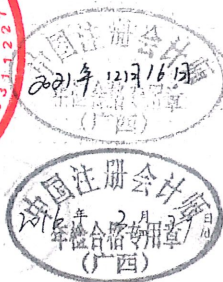 中国注册会计师
2021年12月16日
年检合格专用章
(广西)
中国注册会计师
2016年2月 日
年检合格专用章
(广西)